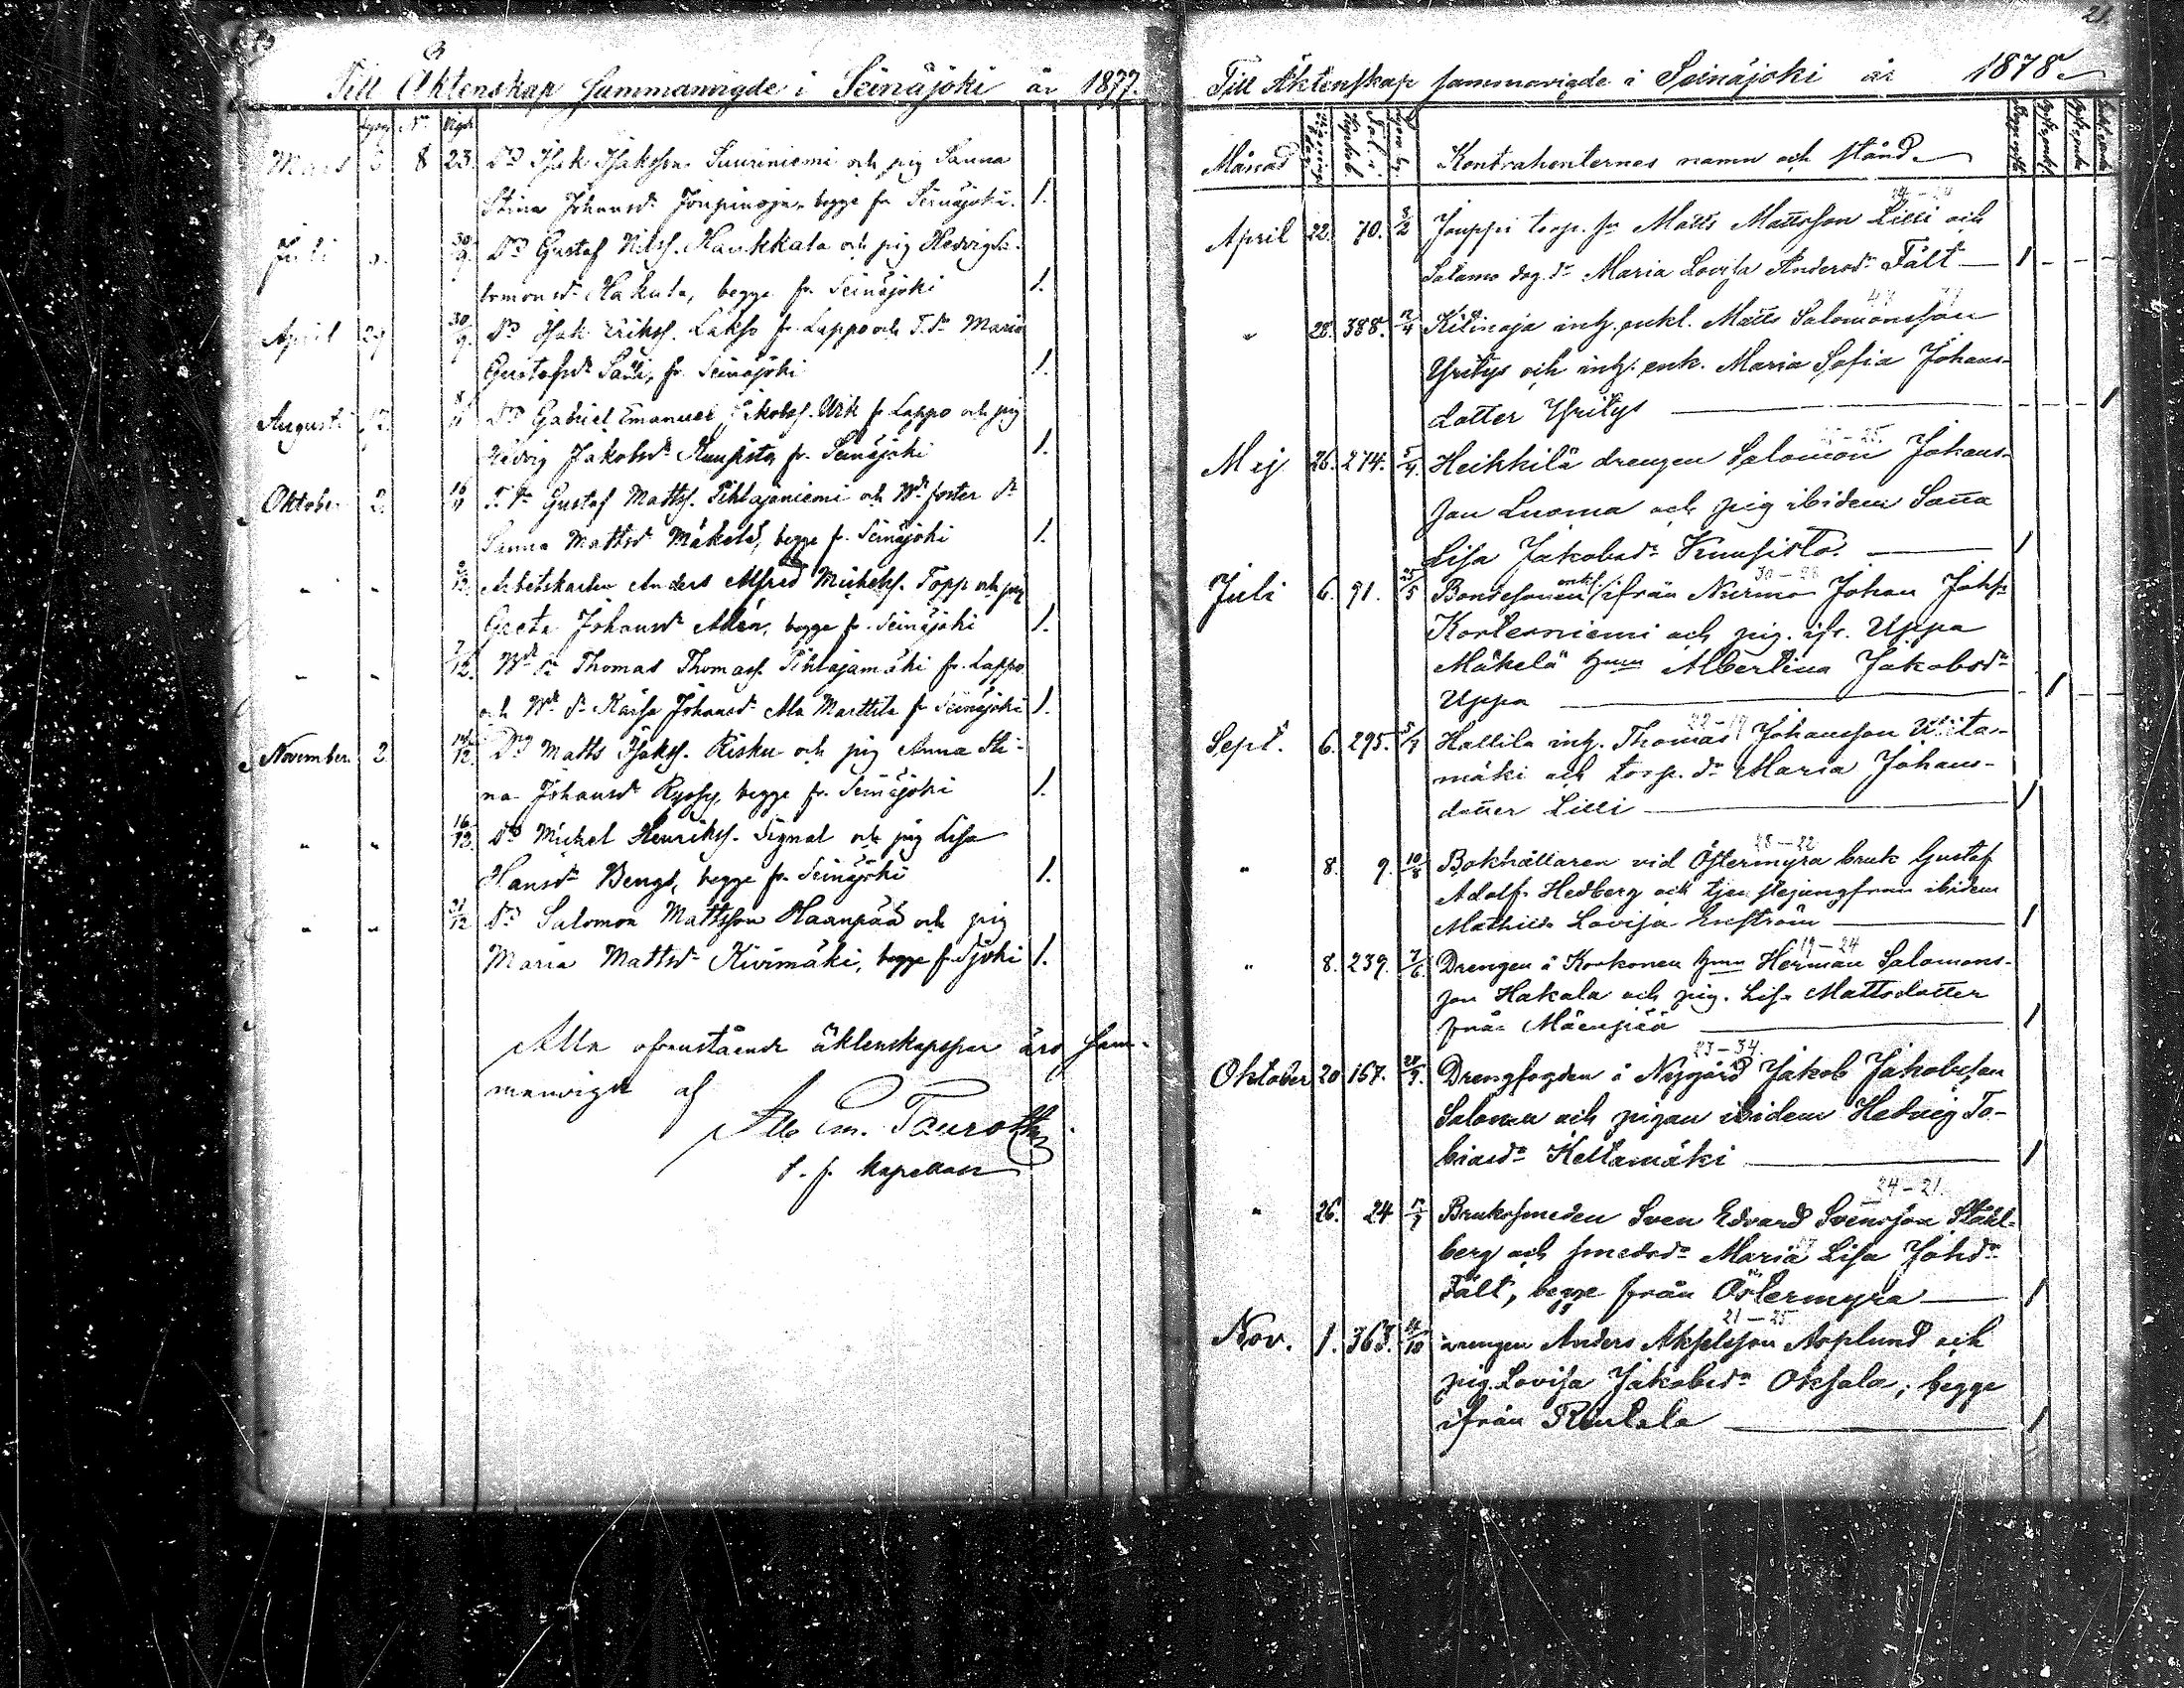 Till Äktenskap Sammanvigde i Seinäjoki år 1877.
Lysn. No Vigde
Mars 3 8 23. Dr Isak Isaksson Suuriniemi och pig Sanna
Stina Johansdr Joupinoja, begge fr Seinäjoki. 1.
Juli 30/9. Dr Gustaf Nilss. Haukkala och pig Hedvig Sa-
lomonsdr Hakala, begge fr. Seinäjoki 1.
April 29 30/9. Dr Isak Erikss. Lakso fr Lappo och T.dr Maria
Gustafsdr Säli, fr Seinäjoki 1.
Augusti Dr Gabriel Emanuel Jakobss. Utk fr Lappo och pig
Hedvig Jakobsdr Knuusita fr. Seinäjoki 1.
Oktober 2. T.dr Gustaf Mattss. Pihlajaniemi och foster dr
Sanna Mattsdr Mäkelä, begge fr. Seinäjoki 1.
" " Arbetskarlen Anders Alfred Michelss. Topp och pig
Greta Johansdr Alén, begge fr. Seinäjoki 1.
" " Thomas Thomass. Pihlajamäki fr. Lappo
och Kaisa Johansdr Ala Marttila fr Seinäjoki 1.
November. 2 Dr Matts Isakss. Risku och pig Anna Sti-
na Johansdr Ryssy, begge fr. Seinäjoki 1.
" " 16/12. Dr Michel Henrikss. Signal och pig Lisa
Hansdr Bengs, begge fr Seinäjoki 1.
" " 31/12 Dr Salomon Mattsson Haanpää och pig
Maria Mattsdr Kivimäki, begge fr Sjoki 1.
Alla ofvanstående äktenskapspar äro sam-
manvigde af
Tauroth
t. f. kapellan
21.
Till Äktenskap sammanvigde i Seinäjoki år 1878
Månad Kontrahenternes namn och stånd.
24-24
April 22. 70. 3/2 Jouppi torp. sn Matts Mattsson Lilli och
Salamo dog. dr Maria Lovisa Andersdr Fält 1 - - -
" 28. 388. 12/4 Kilinoja inh. enkl. Matts Salomonsson
Yritys och inh. enk. Maria Sofia Johans-
dotter Yritys - - - 1
25-25.
Mej 26. 274. 5/4. Heikkilä drengen Salomon Johans-
son Luoma och pig ibidem Sanna
Lisa Jakobsdr Knuusisto. 1
30-26
Juli 6. 91. 25/5 Bondesonen enkl. ifrån Nurmo Johan Johss.
Korteniemi och pig. ifr. Uppa
Mäkelä hmn Albertina Jakobsdr
Uppa - 1 - -
22-19
Sept. 6. 295. 5/7 Hallila inh. Thomas Johansson Wiita-
mäki och torp. dr Maria Johans-
dotter Lilli 1
28-22
" 8. 9. 10/8 Bokhållaren vid Östermyra bruk Gustaf
Adolf Hedberg och tjenstejungfrun ibidem
Mathilda Lovisa Enström 1
19-24
" 8. 239. 7/6. Drengen å Korkonen hmn Herman Salomons-
son Hakala och pig. Lisa Mattsdotter
från Mäenpää 1
23-34.
Oktober 20 167. 28/9. Drengfogden å Nygård Jakob Jakobsson
Salonen och pigan ibidem Hedvig To-
biasdr Keltamäki 1
24-21.
" 26. 24 Bruksmeden Sven Edvard Svensson Stål-
berg och smedsdr Maria Lisa Johdr
Fält, begge från Östermyra 1
21-25
Nov. 1. 363. drengen Anders Akselsson Asplund och
pig. Lovisa Jakobsdr Oksala, begge
ifrån Rintala 1